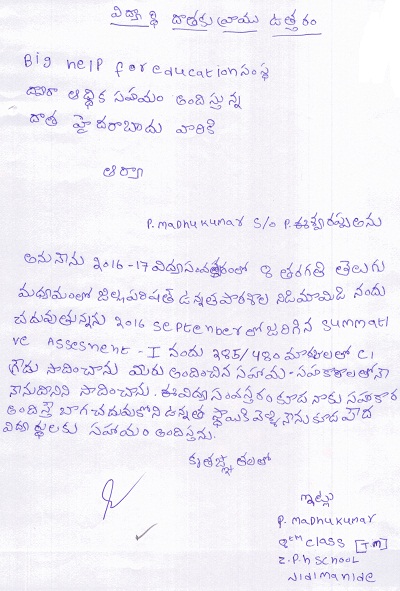 విద్యార్థి దాతకు వ్రాయు ఉత్తరం
Big help for education సంస్థ
ద్వారా ఆర్థిక సహాయం అందిస్తున్న
దాత హైదరాబాదు వారికి
ఆర్యా
P. Madhukumar S/o P. ఈశ్వరప్ప అను
అను నేను 2016-17 విద్యాసంవత్సరంలో 8 తరగతి తెలుగు
మద్యమంలో జిల్లా పరిషత్ ఉన్నత పాఠశాల నిడిమామిడి నందు
చదువుతున్నను 2016 september లో జరిగిన summati
ve Assesment - I నందు 385/480 మార్కులలో C1
గ్రేడు సాదించాను మీరు అందించిన సహాయ - సహకారాలతోనే
నేను దానిని సాదించాను. ఈ విద్యా సంవస్తరం కూడ నాకు సహకారం
అందిస్తే బాగ చదువుకోని ఉన్నత స్థాయికి వెళ్ళి నేను కూడ పేద
విద్యార్థులకు సహాయం అందిస్తను.
కృతజ్ఞతలతో
ఇట్లు
P. madhukumar
8th class [T.m]
Z.P.h school
Nidimamide